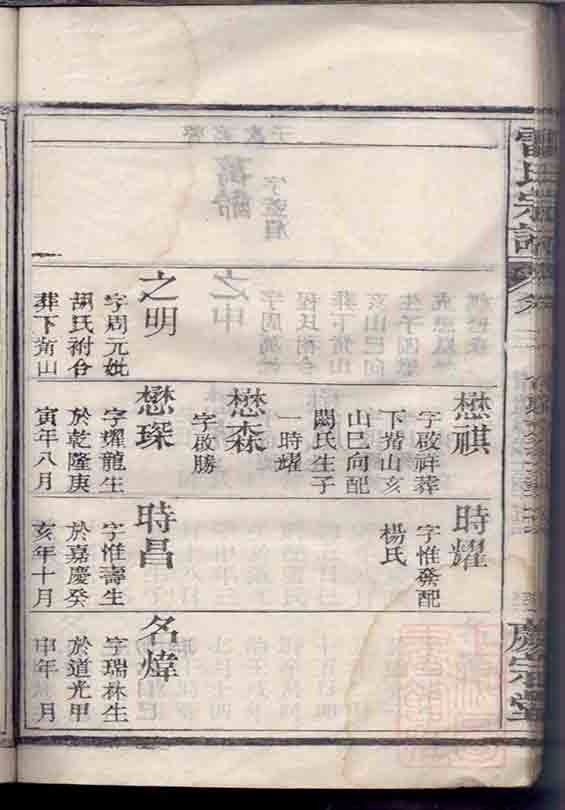 雷氏宗譜
懋祺
字啟祥葬
下嘴山亥
山巳向配
闕氏生子
一時耀
懋森
字啟勝
時耀
字惟發配
楊氏
之明
字周元妣
胡氏祔合
葬下嘴山
懋琛
字耀龍生
於乾隆庚
寅年八月
時昌
字惟壽生
於嘉慶癸
亥年十月
名煒
字瑞林生
於道光甲
申年 月